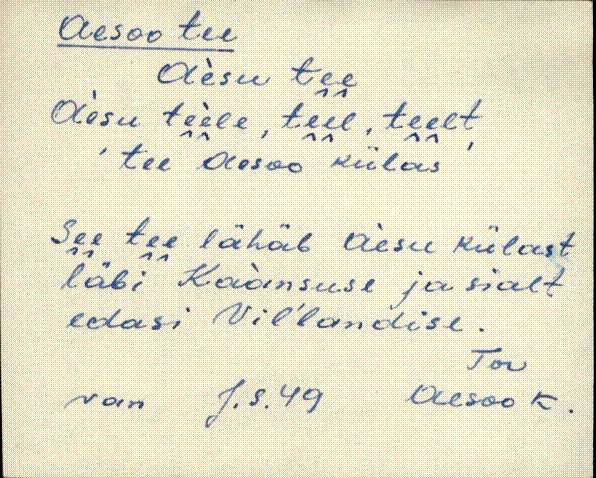 Aesoo tee
Aèsu te̬e̬
Aèsu te̬è̬le, te̬e̬l, te̬e̬lt,
'tee Aesoo külas'
Se̬e̬ te̬e̬ lähäb Aèsu külast
läbi Kaànsuse ja sialt
edasi Vil'landise.
Tor
van J.S.49 Aesoo k.